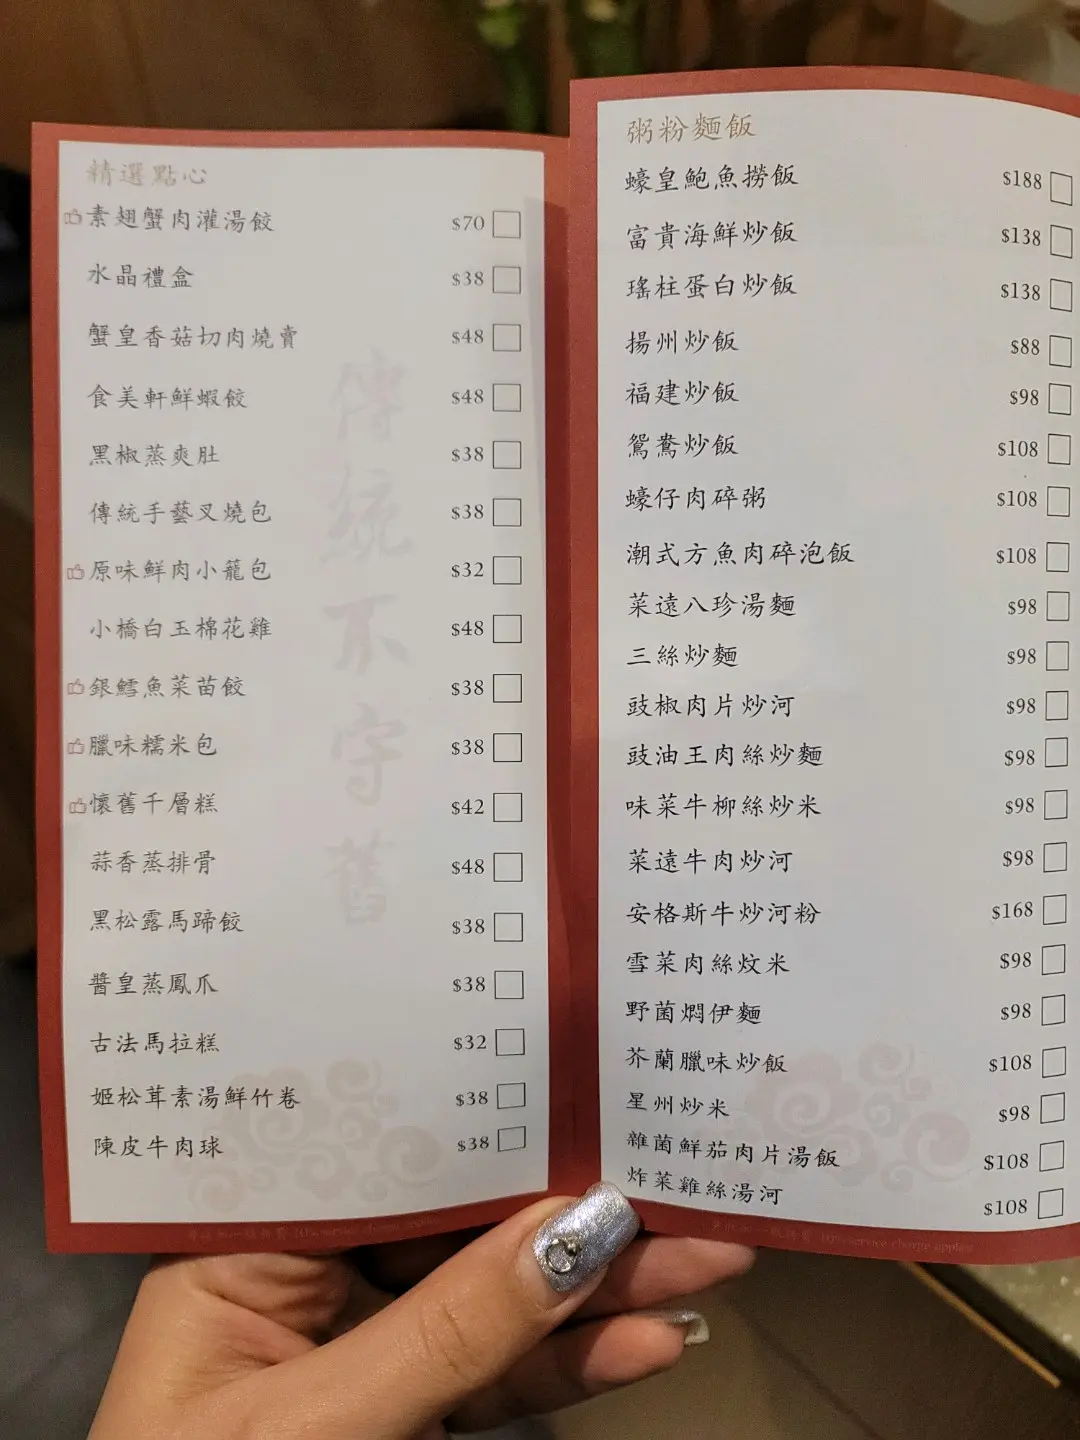 精選點心
素翅蟹肉灌湯餃 $70
水晶禮盒 $38
蟹皇香菇切肉燒賣 $48
食美軒鮮蝦餃 $48
黑椒蒸爽肚 $38
傳統手藝叉燒包 $38
原味鮮肉小籠包 $32
小橋白玉棉花雞 $48
銀鱈魚菜苗餃 $38
臘味糯米包 $38
懷舊千層糕 $42
蒜香蒸排骨 $48
黑松露馬蹄餃 $38
醬皇蒸鳳爪 $38
古法馬拉糕 $32
姬松茸素湯鮮竹卷 $38
陳皮牛肉球 $38
傳統不守舊
另收加一服務費 10% service charge applies
粥粉麵飯
蠔皇鮑魚撈飯 $188
富貴海鮮炒飯 $138
瑤柱蛋白炒飯 $138
揚州炒飯 $88
福建炒飯 $98
鴛鴦炒飯 $108
蠔仔肉碎粥 $108
潮式方魚肉碎泡飯 $108
菜遠八珍湯麵 $98
三絲炒麵 $98
豉椒肉片炒河 $98
豉油王肉絲炒麵 $98
味菜牛柳絲炒米 $98
菜遠牛肉炒河 $98
安格斯牛炒河粉 $168
雪菜肉絲炆米 $98
野菌燜伊麵 $98
芥蘭臘味炒飯 $108
星州炒米 $98
雜菌鮮茄肉片湯飯 $108
炸菜雞絲湯河 $108
10% service charge applies